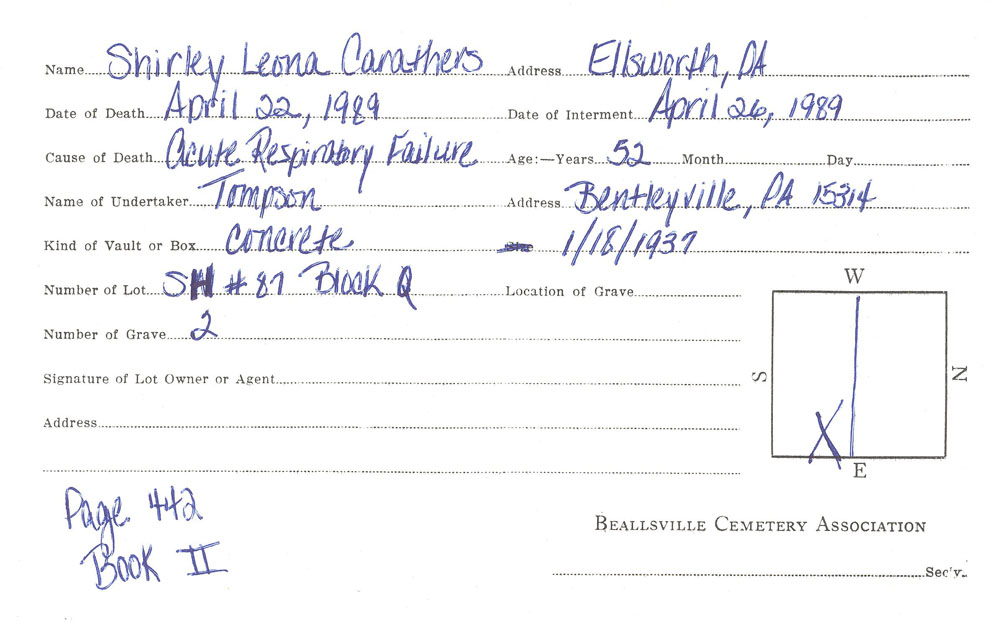 Name Shirley Leona Carathers Address Ellsworth, PA
Date of Death April 22, 1989 Date of Interment April 26, 1989
Cause of Death Acute Respiratory Failure Age:—Years 52 Month Day
Name of Undertaker Tompson Address Bentleyville, PA 15314
Kind of Vault or Box Concrete 1/18/1937
Number of Lot SH # 87 Block Q Location of Grave
W
Number of Grave 2
Signature of Lot Owner or Agent
S N
Address
X
E
Page 442
Book II
BEALLSVILLE CEMETERY ASSOCIATION
Sec'y.